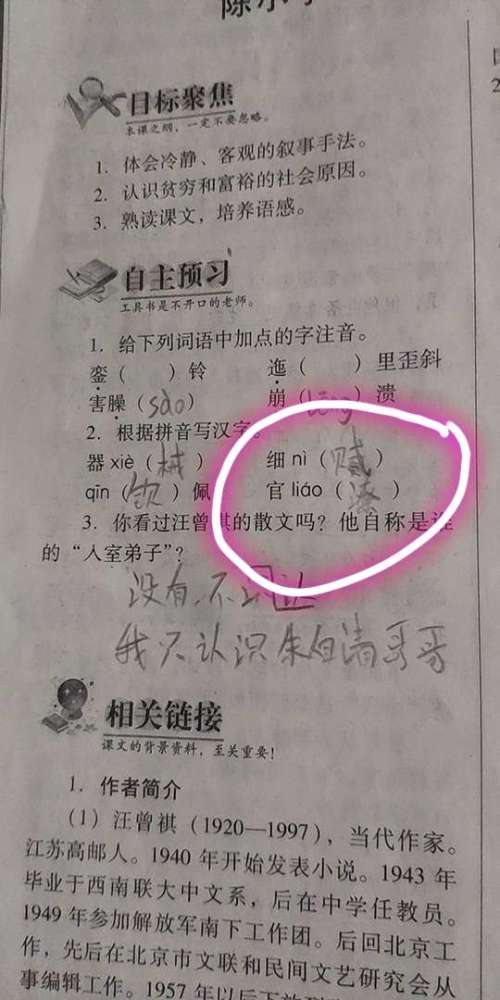 陈小手
目标聚焦
本课之纲，一定不要忽略。
1. 体会冷静、客观的叙事手法。
2. 认识贫穷和富裕的社会原因。
3. 熟读课文，培养语感。
自主预习
工具书是不开口的老师。
1. 给下列词语中加点的字注音。
銮（ ）铃 迤（ ）里歪斜
害臊（sào） 崩（bēng）溃
2. 根据拼音写汉字。
器 xiè（械） 细 nì（ ）
qīn（钦）佩 官 liáo（ ）
3. 你看过汪曾祺的散文吗？他自称是谁
的“入室弟子”？
没有，不
我只认识朱自清哥哥
相关链接
课文的背景资料，至关重要！
1. 作者简介
(1) 汪曾祺（1920—1997），当代作家。
江苏高邮人。1940 年开始发表小说。1943 年
毕业于西南联大中文系，后在中学任教员。
1949 年参加解放军南下工作团。后回北京工
作，先后在北京市文联和民间文艺研究会从
事编辑工作。1957 年以后